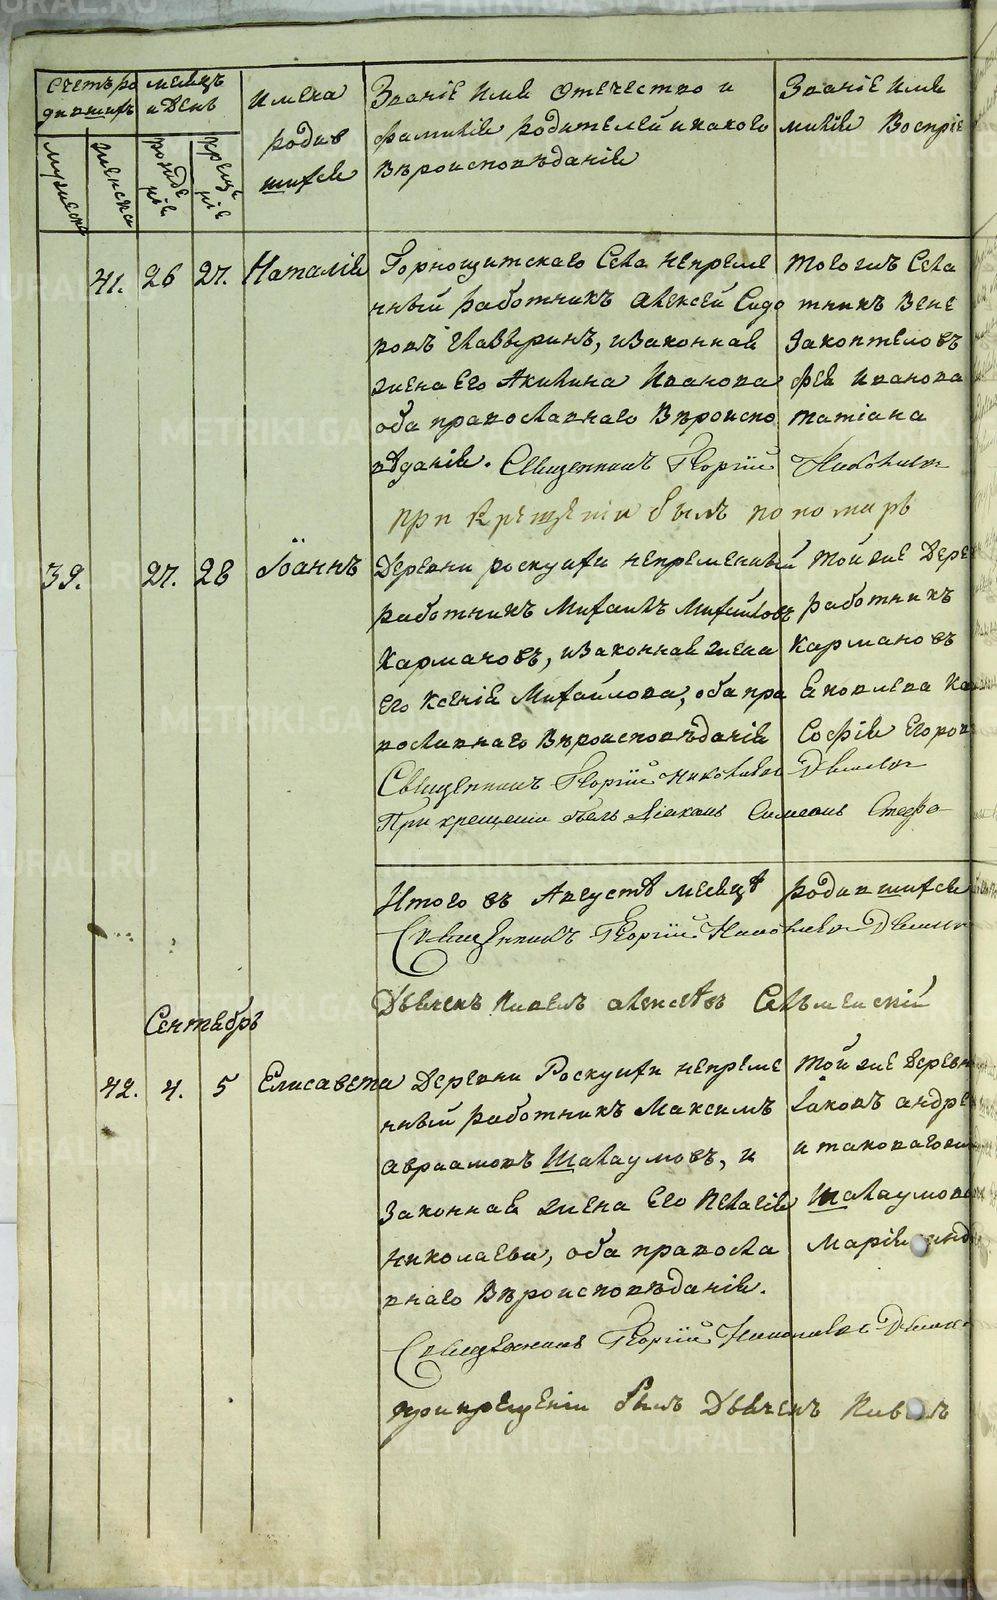 Счетъ ро
дившихъ
месяцъ
и день
Имена
родив
шихся
Званіе имя отечество и
фамилія родителей и какого
вѣроисповѣданія
Званіе имя
милія воспріе
мужеска
женска
рожде
нія
креще
нія
41. 26 27. Наталія
Горнощитскаго села непреме
нный работникъ Алексей Сидо
ровъ Главыринъ, и законная
жена его Акилина Иванова
оба православнаго вѣроиспо
вѣданія. Священникъ Георгій Николаевъ
тогожъ села
тникъ Вене
Закоптеловъ
фея Иванова
Татіана
при крещеніи былъ пономарь
39. 27. 28 Іоаннъ
Деревни Роскуихи непременный
работникъ Михаилъ Михайловъ
Кармановъ, и законная жена
его Ксенія Михайлова, оба пра
вославнаго вѣроисповѣданія
Священникъ Георгій Николаевъ
При крещеніи былъ діаконъ Симеонъ Стефа
той же дере
работникъ
Кармановъ
Яковлева Ка
Софія Егоров
Итого въ Августѣ месяцѣ родившихся
Священникъ Георгій Николаевъ
Дьячекъ Павелъ Алексѣевъ Сельменскій
Сентябрь
42. 4. 5 Елисавета
Деревни Роскуихи непреме
нный работникъ Максимъ
Авраамовъ Шалаумовъ, и
законная жена его Пелагія
Николаева, оба правосла
внаго вѣроисповѣданія.
Священникъ Георгій Николаевъ
той же деревн
Іаковъ Андре
и таковаго
Шалаумова
Марія
при крещеніи былъ дьячекъ Павелъ
METRIKI.GASO-URAL.RU